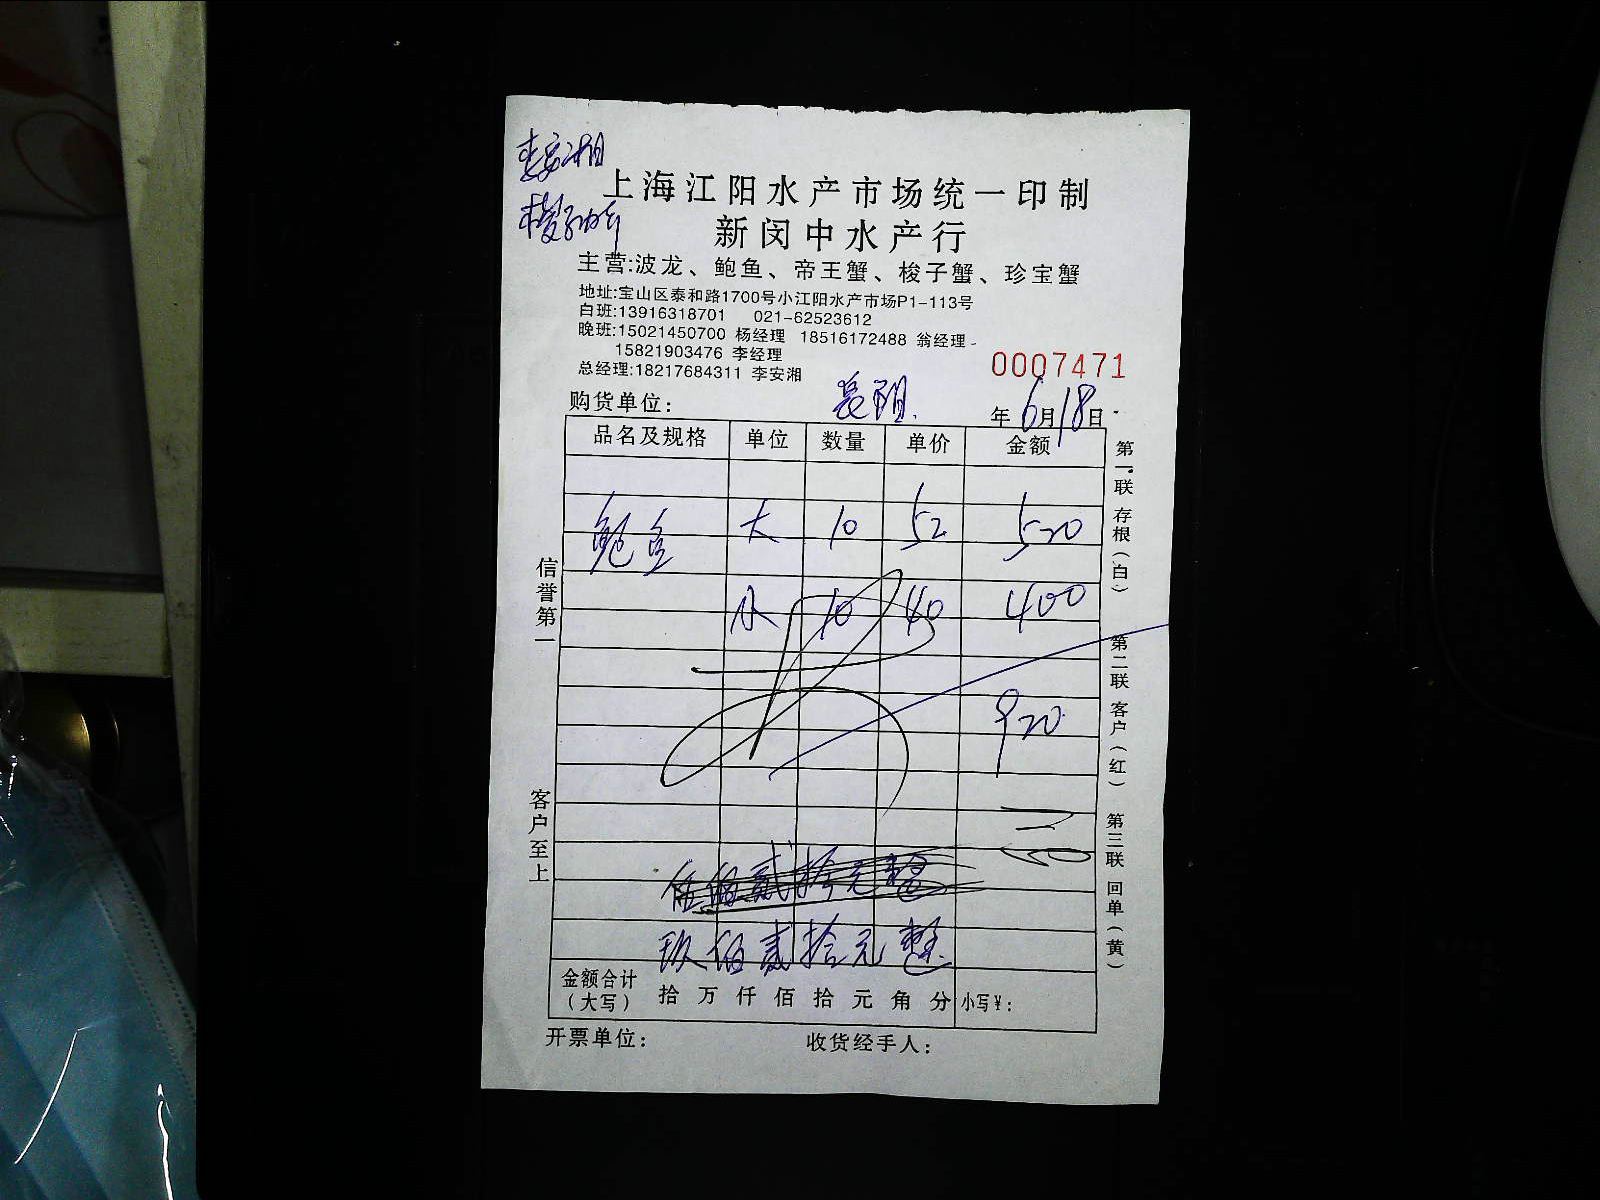 李安湘
上海江阳水产市场统一印制
新闵中水产行
主营:波龙、鲍鱼、帝王蟹、梭子蟹、珍宝蟹
地址:宝山区泰和路1700号小江阳水产市场P1-113号
白班:13916318701 021-62523612
晚班:15021450700 杨经理 18516172488 翁经理
15821903476 李经理
总经理:18217684311 李安湘
0007471
购货单位:
年6月18日
品名及规格 单位 数量 单价 金额
鲍鱼 大 10 52 520
小 10 40 400
920
伍佰贰拾元整
玖佰贰拾元整
金额合计
(大写) 拾 万 仟 佰 拾 元 角 分 小写¥:
开票单位: 收货经手人:
信誉第一
客户至上
第一联 存根(白)
第二联 客户(红)
第三联 回单(黄)